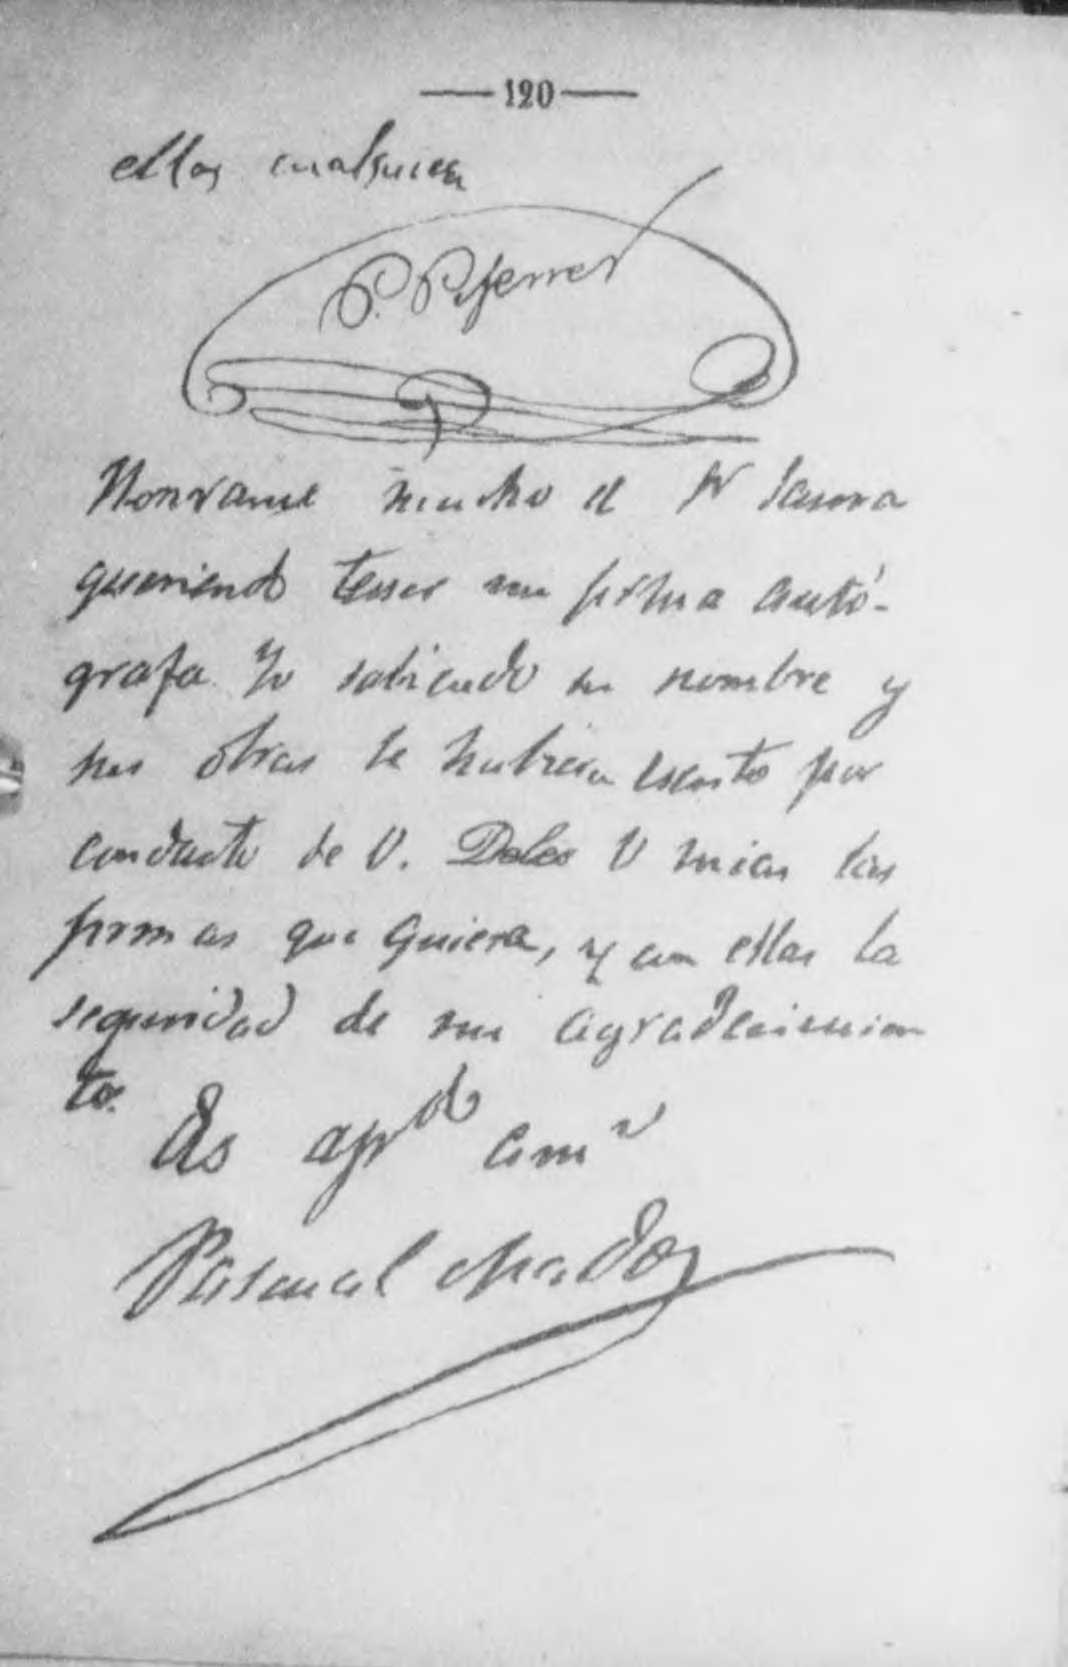 — 120 —
ellos cualquiera
P. Piferrer
Honrame mucho el Sr
queriendo tener una firma autó-
grafa. Yo sabiendo su nombre y
sus obras le hubiera escrito por
conducto de V. Deles V mias las
firmas que quiera, y con ellas la
seguridad de mi agradecimien
to.
Es apdo am
Pascual Madoz